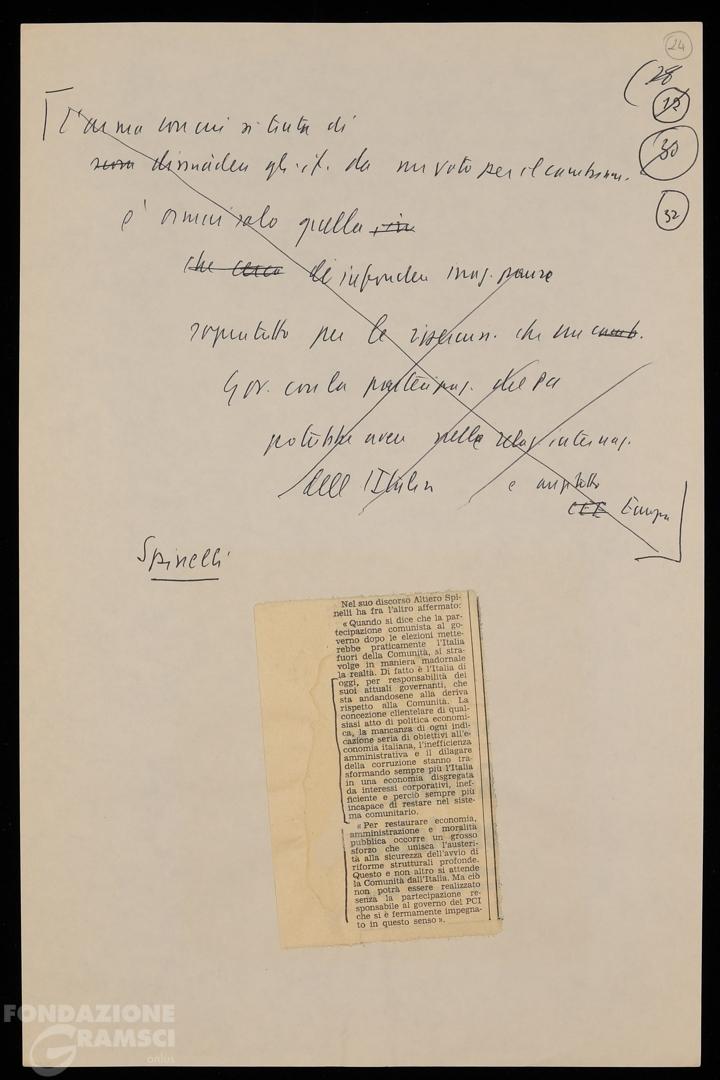 24
28
12
30
32
L'arma con cui si tenta di
dissuadere gli it. da un voto per il cambiam.
è ormai solo quella
che cerca di infonder insg. paure
soprattutto per le ripercuss. che un camb.
Gov. con la partecipaz. del PCI
potrebbe aver nelle relaz. internaz.
dell'Italia e anzitutto
CEE Europa
Spinelli
Nel suo discorso Altiero Spi-
nelli ha fra l'altro affermato:
« Quando si dice che la par-
tecipazione comunista al go-
verno dopo le elezioni mette-
rebbe praticamente l'Italia
fuori della Comunità, si stra-
volge in maniera madornale
la realtà. Di fatto è l'Italia di
oggi, per responsabilità dei
suoi attuali governanti, che
sta andandosene alla deriva
rispetto alla Comunità. La
concezione clientelare di qual-
siasi atto di politica economi-
ca, la mancanza di ogni indi-
cazione seria di obiettivi all'e-
conomia italiana, l'inefficienza
amministrativa e il dilagare
della corruzione stanno tra-
sformando sempre più l'Italia
in una economia disgregata
da interessi corporativi, inef-
ficiente e perciò sempre più
incapace di restare nel siste-
ma comunitario.
« Per restaurare economia,
amministrazione e moralità
pubblica occorre un grosso
sforzo che unisca l'austeri-
tà alla sicurezza dell'avvio di
riforme strutturali profonde.
Questo e non altro si attende
la Comunità dall'Italia. Ma ciò
non potrà essere realizzato
senza la partecipazione re-
sponsabile al governo del PCI
che si è fermamente impegna-
to in questo senso ».
FONDAZIONE
GRAMSCI
onlus